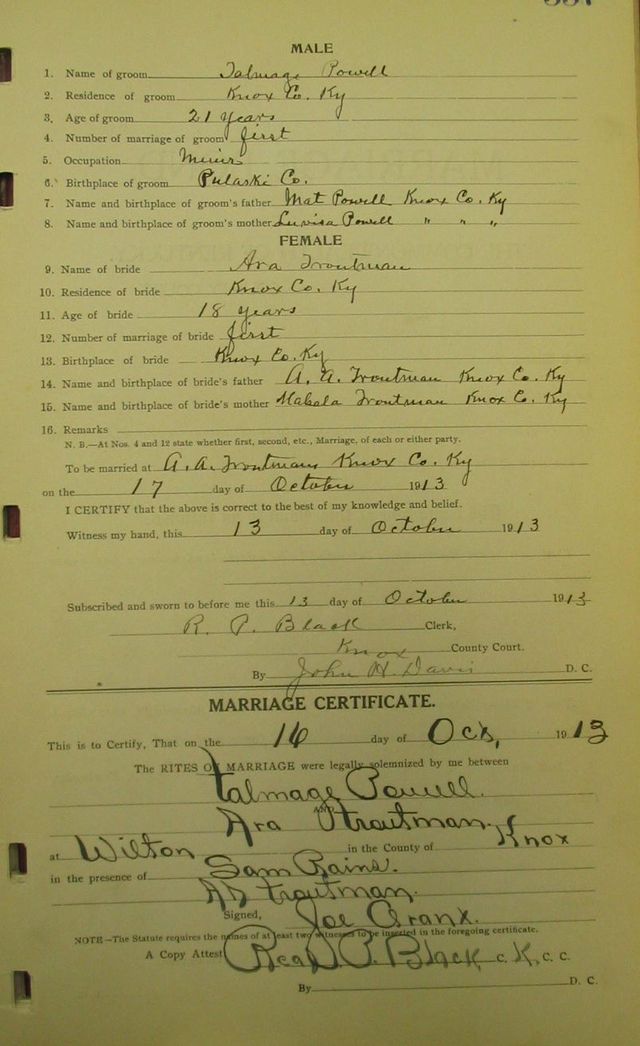 MALE
1. Name of groom Talmage Powell
2. Residence of groom Knox Co. Ky
3. Age of groom 21 years
4. Number of marriage of groom first
5. Occupation Miner
6. Birthplace of groom Pulaski Co.
7. Name and birthplace of groom's father Mat Powell Knox Co. Ky
8. Name and birthplace of groom's mother Luvisa Powell " " "
FEMALE
9. Name of bride Ara Troutman
10. Residence of bride Knox Co. Ky
11. Age of bride 18 years
12. Number of marriage of bride first
13. Birthplace of bride Knox Co. Ky
14. Name and birthplace of bride's father A. A. Troutman Knox Co. Ky
15. Name and birthplace of bride's mother Mahala Troutman Knox Co. Ky
16. Remarks
N. B.—At Nos. 4 and 12 state whether first, second, etc., Marriage, of each or either party.
To be married at A. A. Troutmans Knox Co. Ky
on the 17 day of October 1913
I CERTIFY that the above is correct to the best of my knowledge and belief.
Witness my hand, this 13 day of October 1913
Subscribed and sworn to before me this 13 day of October 1913
R. P. Black Clerk,
Knox County Court.
By John H. Davis D. C.
MARRIAGE CERTIFICATE.
This is to Certify, That on the 16 day of Oct, 1913
The RITES OF MARRIAGE were legally solemnized by me between
Talmage Powell.
AND
Ara Troutman.
at Wilton in the County of Knox
in the presence of Sam Rains.
troutman.
Signed, Joe
NOTE—The Statute requires the names of at least two witnesses to be inserted in the foregoing certificate.
A Copy Attest P. Black C. K. C. C.
By D. C.